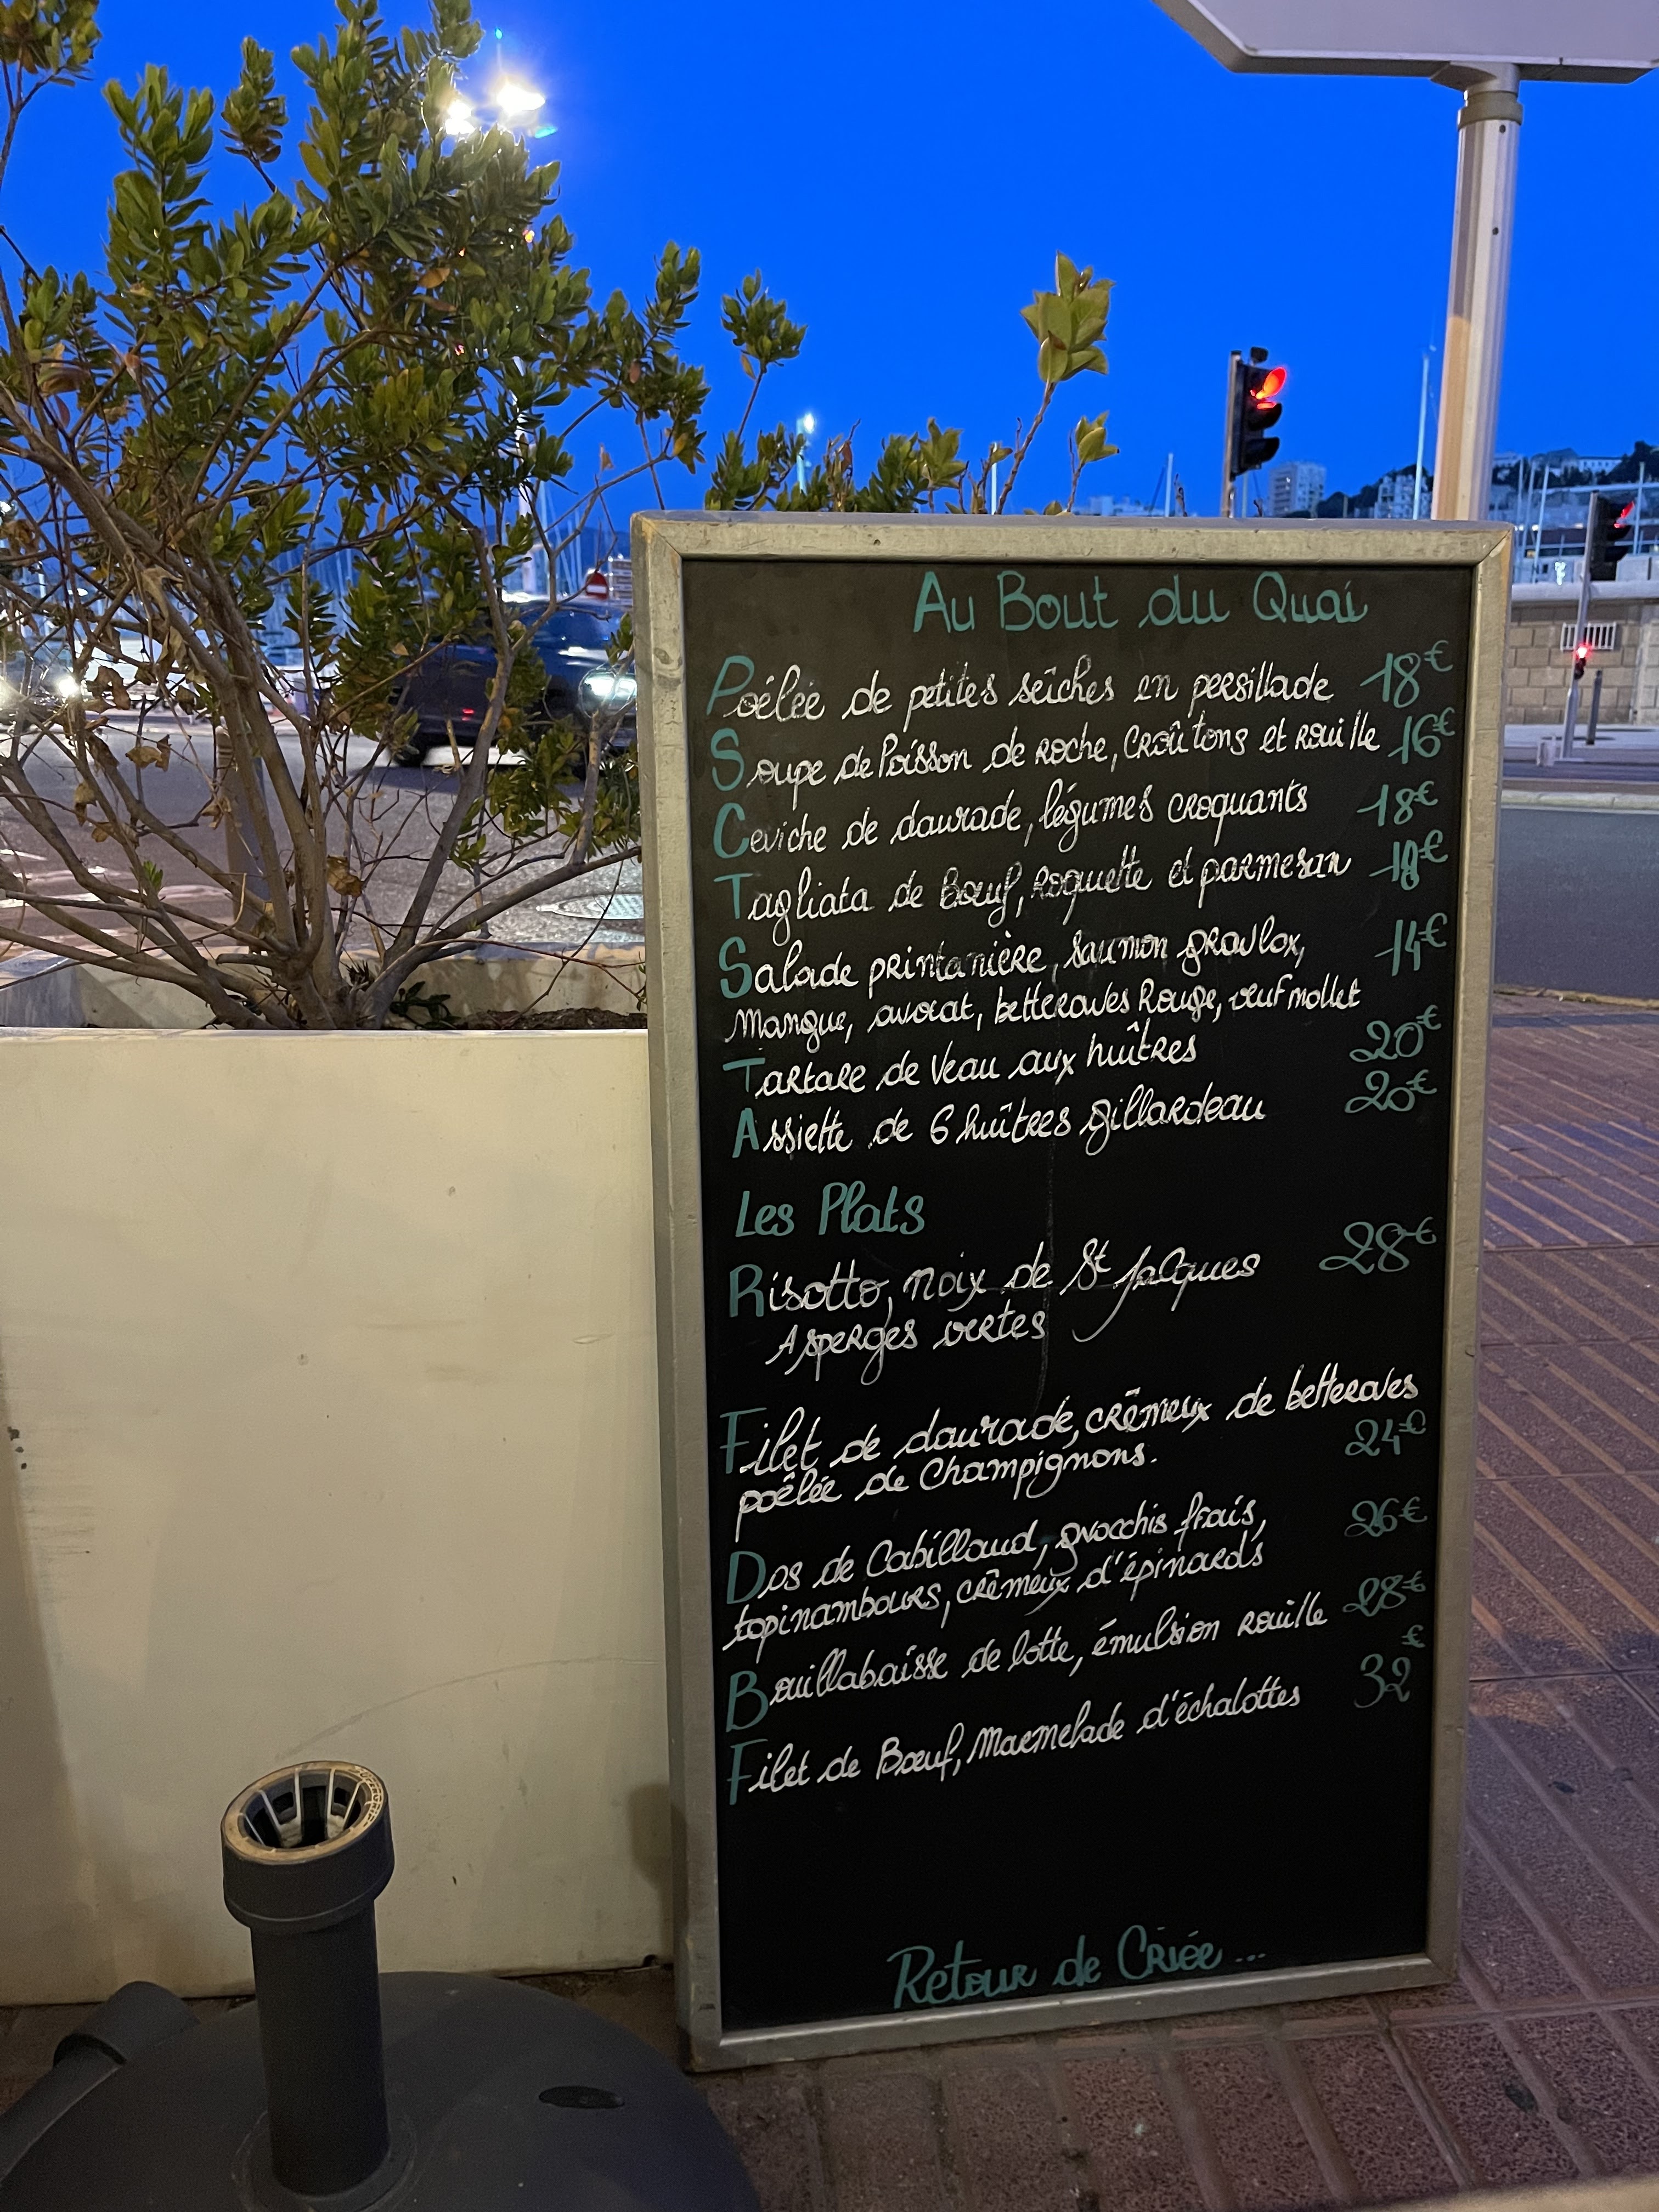 Au Bout du Quai
Poêlée de petites seîches en persillade 18€
Soupe de Poisson de roche, croûtons et rouille 16€
Ceviche de daurade, légumes croquants 18€
Tagliata de Bœuf, roquette et parmesan 18€
Salade printanière, saumon gravlox, 14€
Mangue, avocat, betteraves Rouge, œuf mollet
Tartare de Veau aux huîtres 20€
Assiette de 6 huîtres gillardeau 20€
Les Plats
Risotto, noix de St Jacques 28€
Asperges vertes
Filet de daurade, crêmeux de betteraves
poêlée de Champignons. 24€
Dos de Cabillaud, gnocchis frais, 26€
topinambours, crêmeux d'épinards
Bouillabaisse de lotte, émulsion rouille 28€
Filet de Bœuf, Marmelade d'échalottes 32€
Retour de Criée...